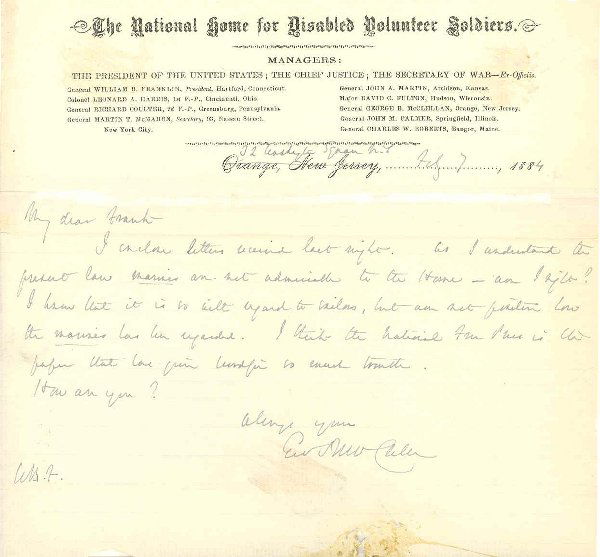 The National Home for Disabled Volunteer Soldiers.
MANAGERS:
THE PRESIDENT OF THE UNITED STATES; THE CHIEF JUSTICE; THE SECRETARY OF WAR—Ex-Officiis.
General WILLIAM B. FRANKLIN, President, Hartford, Connecticut.
Colonel LEONARD A. HARRIS, 1st V.-P., Cincinnati, Ohio.
General RICHARD COULTER, 2d V.-P., Greensburg, Pennsylvania.
General MARTIN T. McMAHON, Secretary, 93, Nassau Street,
New York City.
General JOHN A. MARTIN, Atchison, Kansas.
Major DAVID C. FULTON, Hudson, Wisconsin.
General GEORGE B. McCLELLAN, Orange, New Jersey.
General JOHN M. PALMER, Springfield, Illinois.
General CHARLES W. ROBERTS, Bangor, Maine.
32 Washington Square N.Y.
Orange, New Jersey, Feby 7, 1884
My dear Frank
I enclose letters received last night. As I understand the
present law marines are not admissible to the Home — am I right?
I know that it is so with regard to sailors, but am not positive how
the marines has been regarded. I think the National is the
paper that has given so much trouble.
How are you?
Always yours
Geo B McClellan
W.B.F.